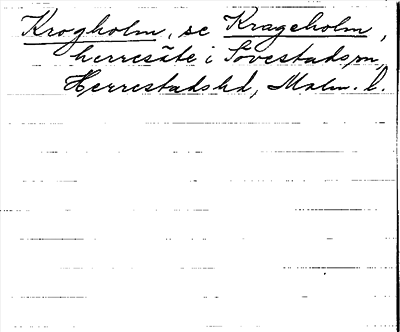 Krogholm, se Krageholm,
herresäte i Sövestads sn,
Herrestads hd, Malm. l.